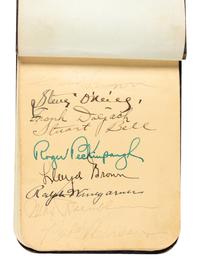 Steve O'Neill,
Frank Doljack
Stuart Bell
Roger Peckinpaugh
Lloyd Brown
Ralph Winegarner